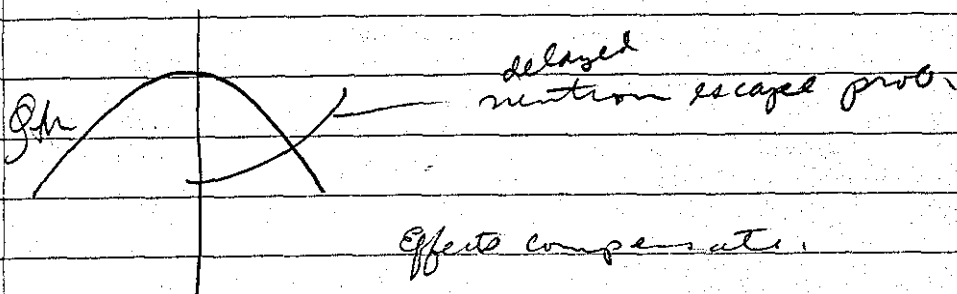 delayed
neutron escape prob.
Effects compensate.